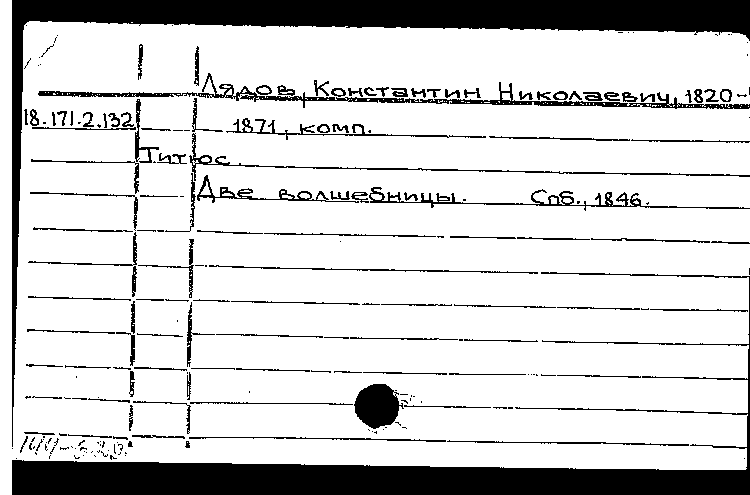 Лядов, Константин Николаевич, 1820-
18.171.2.132
1871, комп.
Титюс.
Две волшебницы. Спб., 1846.